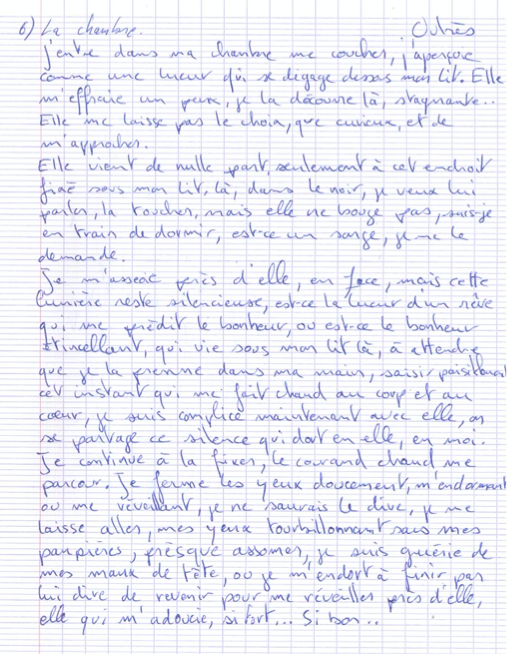 6) La chambre. Outrès
j'entre dans ma chambre me coucher, j'aperçoie
comme une lueur qui se dégage dessous mon lit. Elle
m'effraie un peux, je la découvre là, stagnante..
Elle me laisse pas le choix, que curieux, et de
m'approcher.
Elle vient de nulle part, seulement à cet endroit
fixé sous mon lit, là, dans le noir, je veux lui
parler, la toucher, mais elle ne bouge pas, suis-je
en train de dormir, est-ce un songe, je me le
demande.
Je m'asseoie près d'elle, en face, mais cette
lumière reste silencieuse, est-ce la lueur d'un rêve
qui me prédit le bonheur, ou est-ce le bonheur
étincellant, qui vie sous mon lit là, à attendre
que je la prenne dans ma main, saisir paisiblement
cet instant qui me fait chaud au corp et au
cœur, je suis complice maintenant avec elle, on
se partage ce silence qui dort en elle, en moi.
Je continue à la fixer, le courand chaud me
parcour. Je ferme les yeux doucement, m'endormant
ou me réveillant, je ne saurais le dire, je me
laisse aller, mes yeux tourbillonnant sous mes
paupières, présque assomer, je suis guérie de
mes maux de tête, ou je m'endort à finir par
lui dire de revenir pour me réveiller près d'elle,
elle qui m'adoucie, si fort... Si bon..